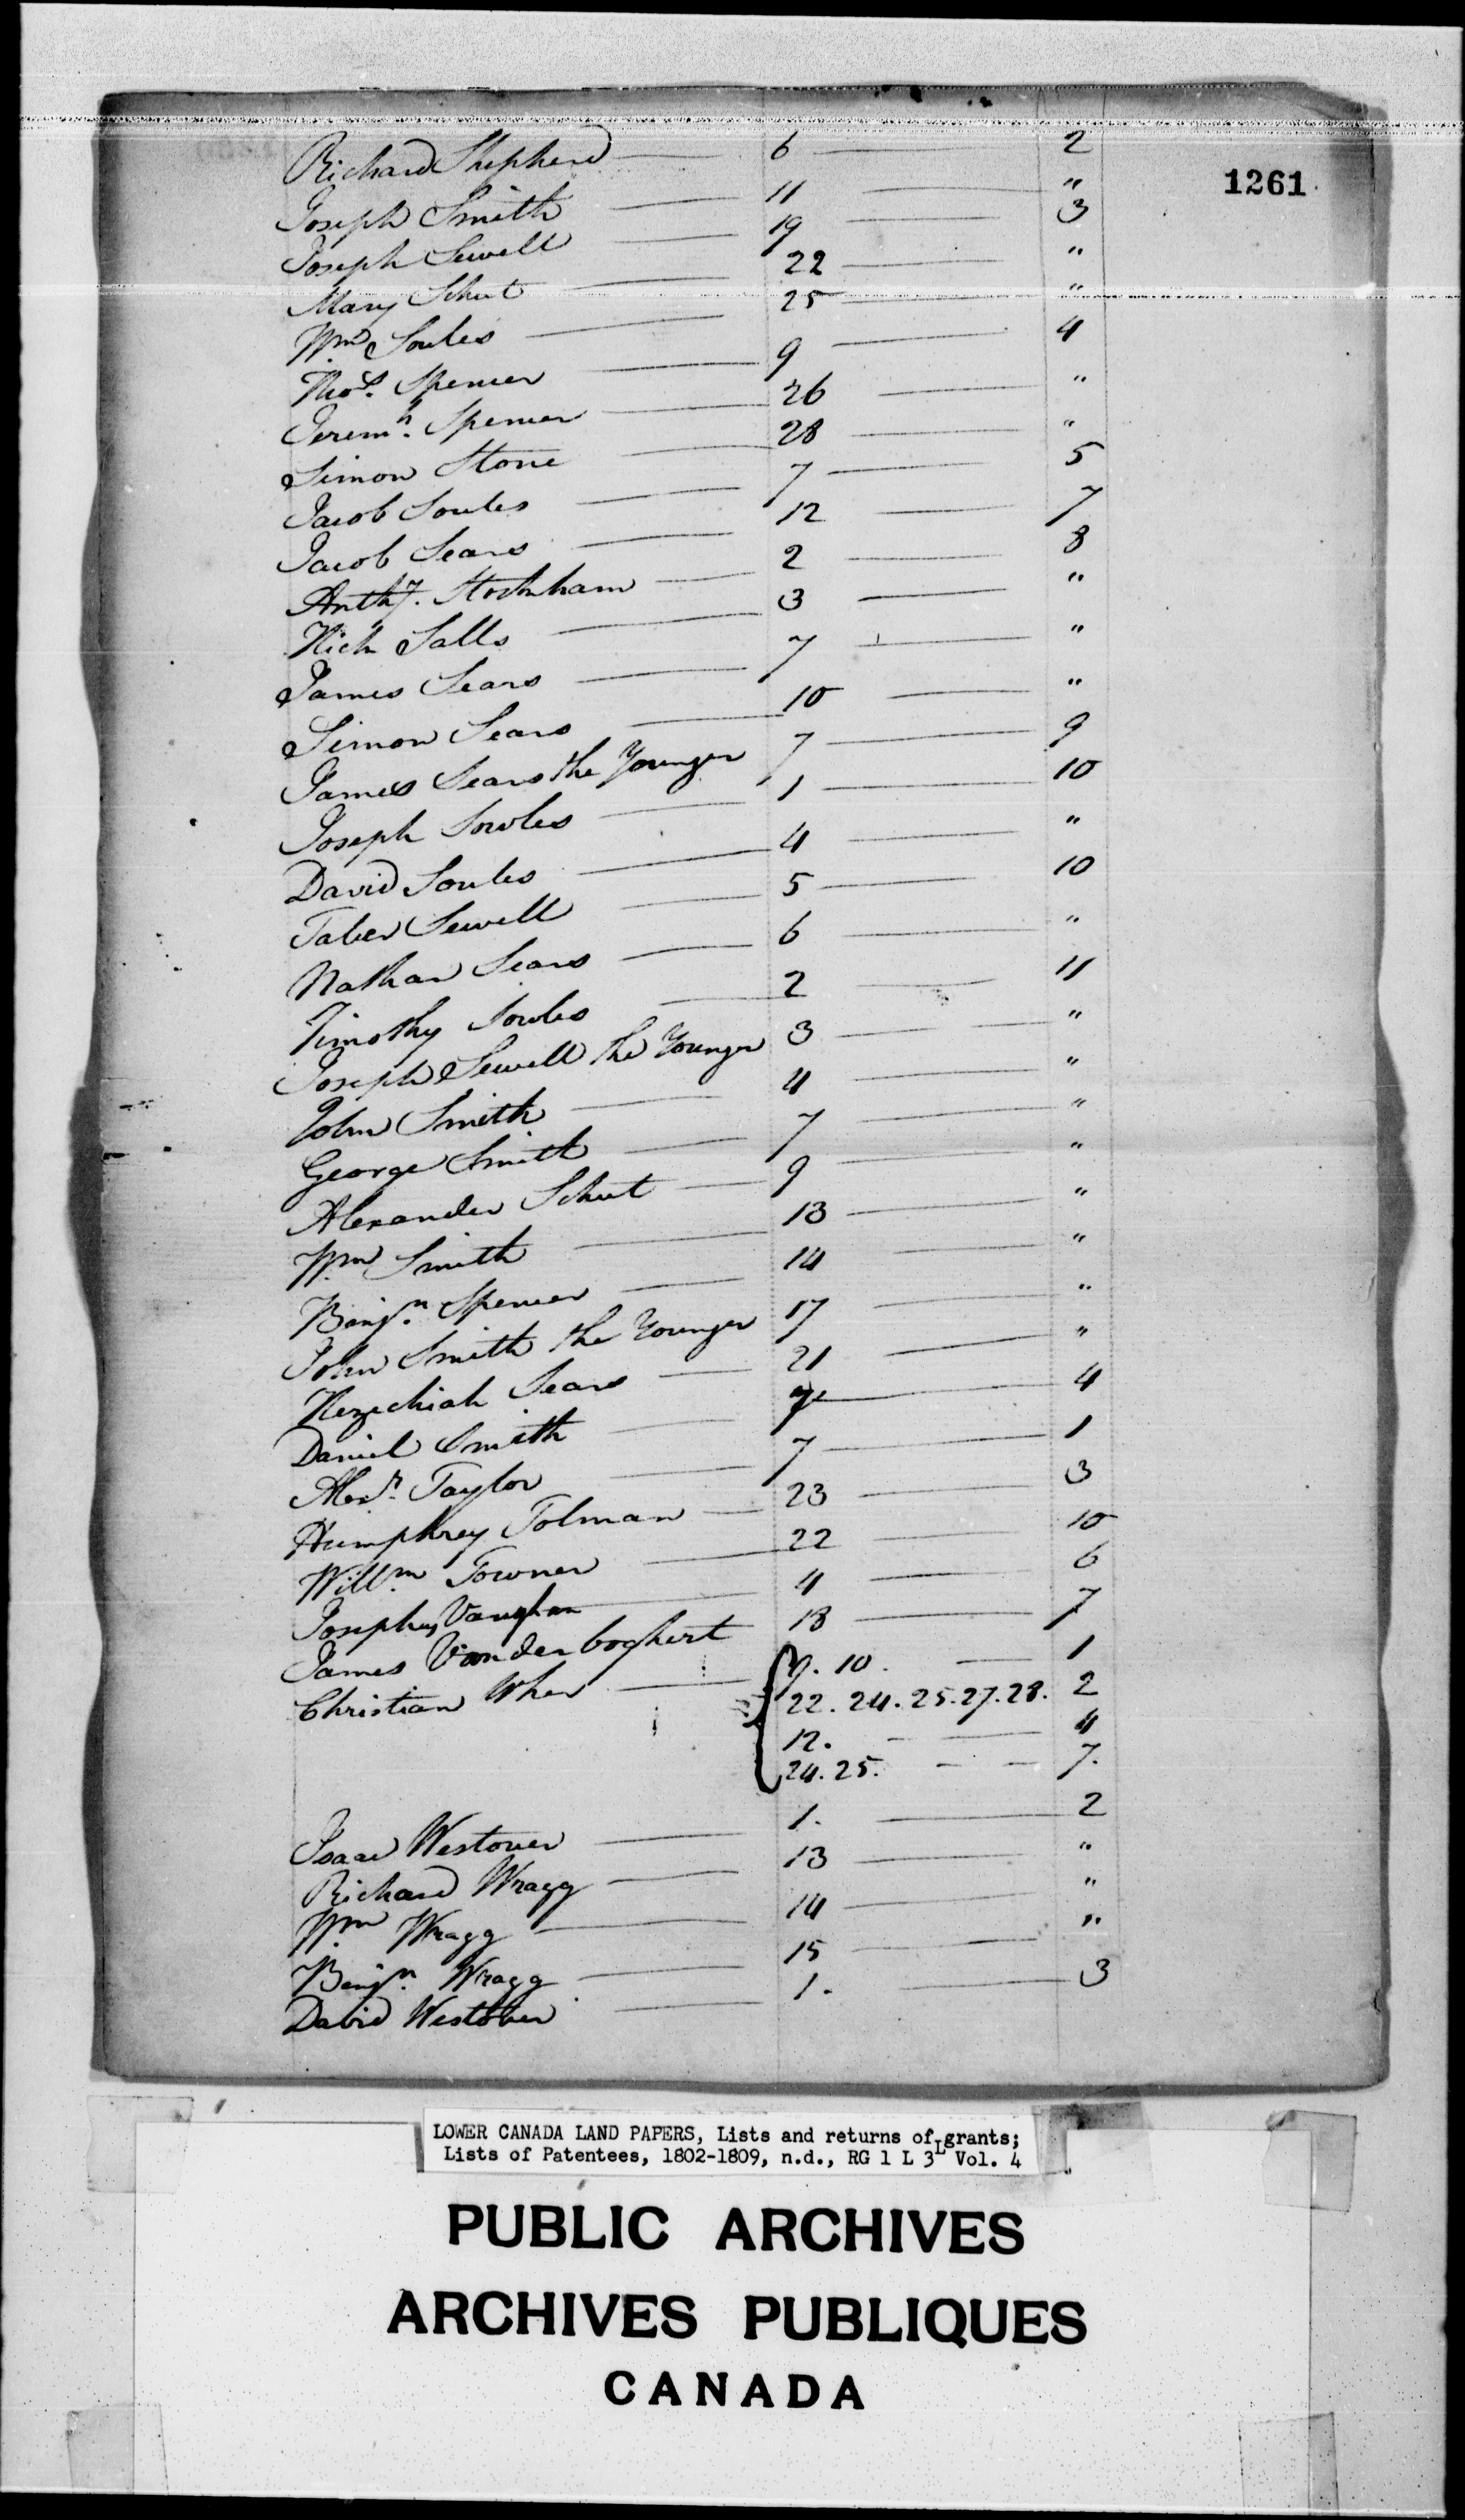 1261
Richard Shepherd 6 2
Joseph Smith 11 "
Joseph Sewell 19 3
Mary Schut 22 "
Wm Soules 25 "
Thos. Spencer 9 4
Jeremh. Spencer 26 "
Simon Stone 28 "
Jacob Soules 7 5
Jacob Sears 12 7
Anthy. Stockham 2 8
Nich Salls 3 "
James Sears 7 "
Simon Sears 10 "
James Sears the Younger 7 9
Joseph Sowles 1 10
David Soules 4 "
Taber Sewell 5 10
Nathan Sears 6 "
Timothy Sowles 2 11
Joseph Sewell the Younger 3 "
John Smith 4 "
George Smith 7 "
Alexander Schut 9 "
Wm Smith 13 "
Benjn. Spencer 14 "
John Smith the Younger 17 "
Hezechiah Sears 21 "
Daniel Smith 4
Alexr. Taylor 7 1
Humphrey Tolman 23 3
Willm Towner 22 10
Vaughan 4 6
James Vanderboghert 18 7
Christian Wher 10. 1
22. 24. 25. 27. 28. 2
12. 4
24. 25. 7.
Isaac Westover 1. 2
Richard Wragg 13 "
Wm Wragg 14 "
Benjn. Wragg 15 "
David Westover 1. 3
LOWER CANADA LAND PAPERS, Lists and returns of grants;
Lists of Patentees, 1802-1809, n.d., RG 1 L 3L Vol. 4
PUBLIC ARCHIVES
ARCHIVES PUBLIQUES
CANADA